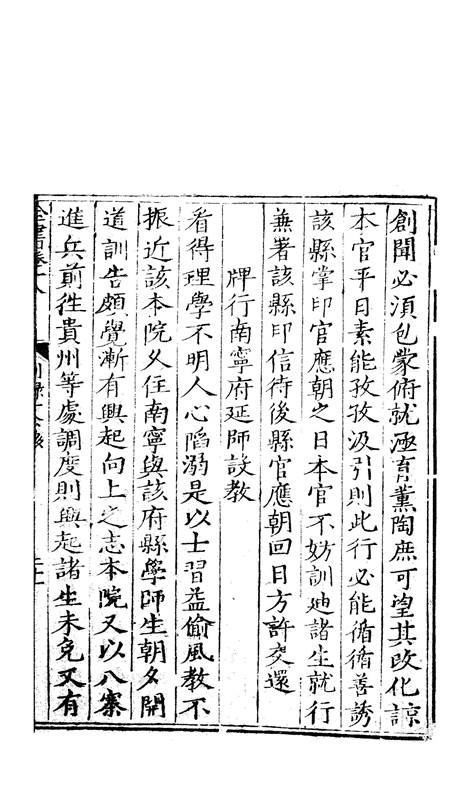 創聞必須包蒙俯就涵育薰陶庶可望其改化諒
本官平日素能孜孜汲引則此行必能循循善誘
該縣掌印官應朝之日本官不妨訓廸諸生就行
兼署該縣印信待後縣官應朝回日方許交還
牌行南寧府延師設教
看得理學不明人心陷溺是以士習益偷風教不
振近該本院久住南寧與該府縣學師生朝夕開
道訓告頗覺漸有興起向上之志本院又以八寨
進兵前徃貴州等處調度則興起諸生未免又有
全書卷十八